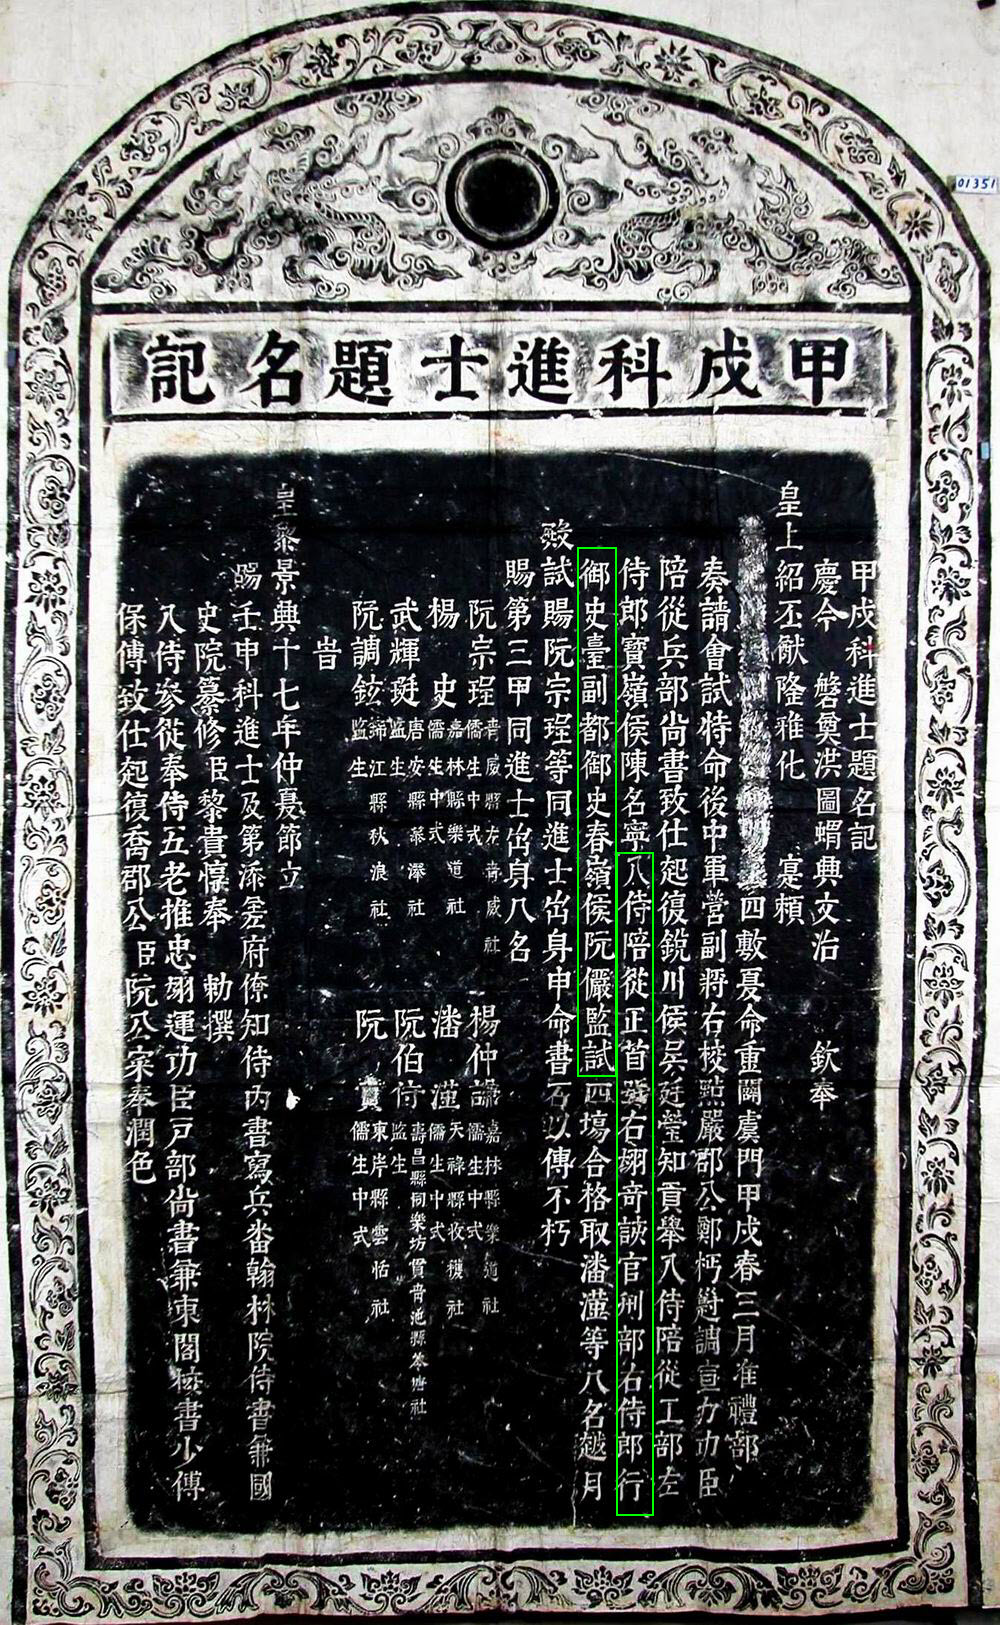 甲戌科進士題名記
01351
甲戌科進士題名記
慶今 磐奠洪圖蝟興文治 欽奉
皇上紹丕猷隆雅化 寔賴
四敷夏命重闢虞門甲戌春三月准禮部
奏請會試特命後中軍營副將右校點嚴郡公鄭杇尌調宣力功臣
陪從兵部尚書致仕起復銳川侯吳廷瑩知貢舉入侍陪從工部左
侍郎寶嶺侯陳名寧入侍陪從正首號右翊奇該官刑部右侍郎行
御史臺副都御史春嶺侯阮儼監試四塲合格取潘瀣等八名越月
殿試賜阮宗珵等同進士出身申命書石以傳不朽
賜第三甲同進士出身八名
阮宗珵 青威縣左青威社 儒生中式
楊仲 嘉林縣樂道社 儒生中式
楊史 嘉林縣樂道社 儒生中式
潘 天祿縣收穫社 儒生中式
武輝珽 唐安縣慕澤社 監生
阮伯 壽昌縣同樂坊貫青池縣 社 監生
阮調鉉 錦江縣秋浪社 監生
阮賞 東岸縣雲恬社 儒生中式
旹
皇黎景興十七年仲夏節立
賜壬申科進士及第添差府僚知侍內書寫兵番翰林院侍書兼國
史院纂修臣黎貴惇奉 勅撰
入侍參從奉侍五老推忠翊運功臣戶部尚書兼東閣校書少傅
保傅致仕起復喬郡公臣阮公寀奉潤色